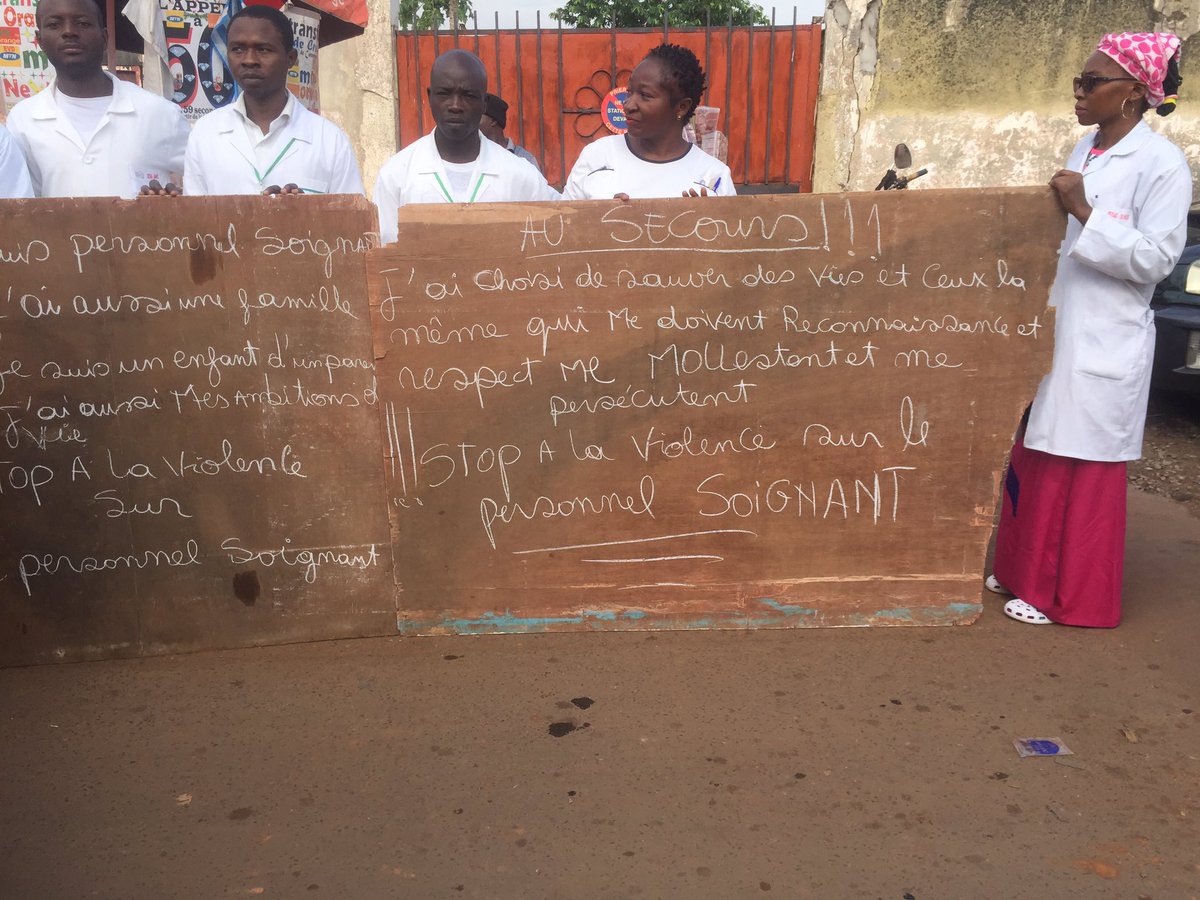 uis personnel Soignant
J'ai aussi une famille
Je suis un enfant d'un paren
J'ai aussi Mes Ambitions d
Vie
TOP A La Violence
Sur
personnel Soignant
AU SECOURS!!!
J'ai choisi de sauver des vies et ceux la
même qui Me doivent Reconnaissance et
respect ME MOLLESTENT et me
persécutent
!!! STOP A la Violence sur le
personnel SOIGNANT
L'APPEL